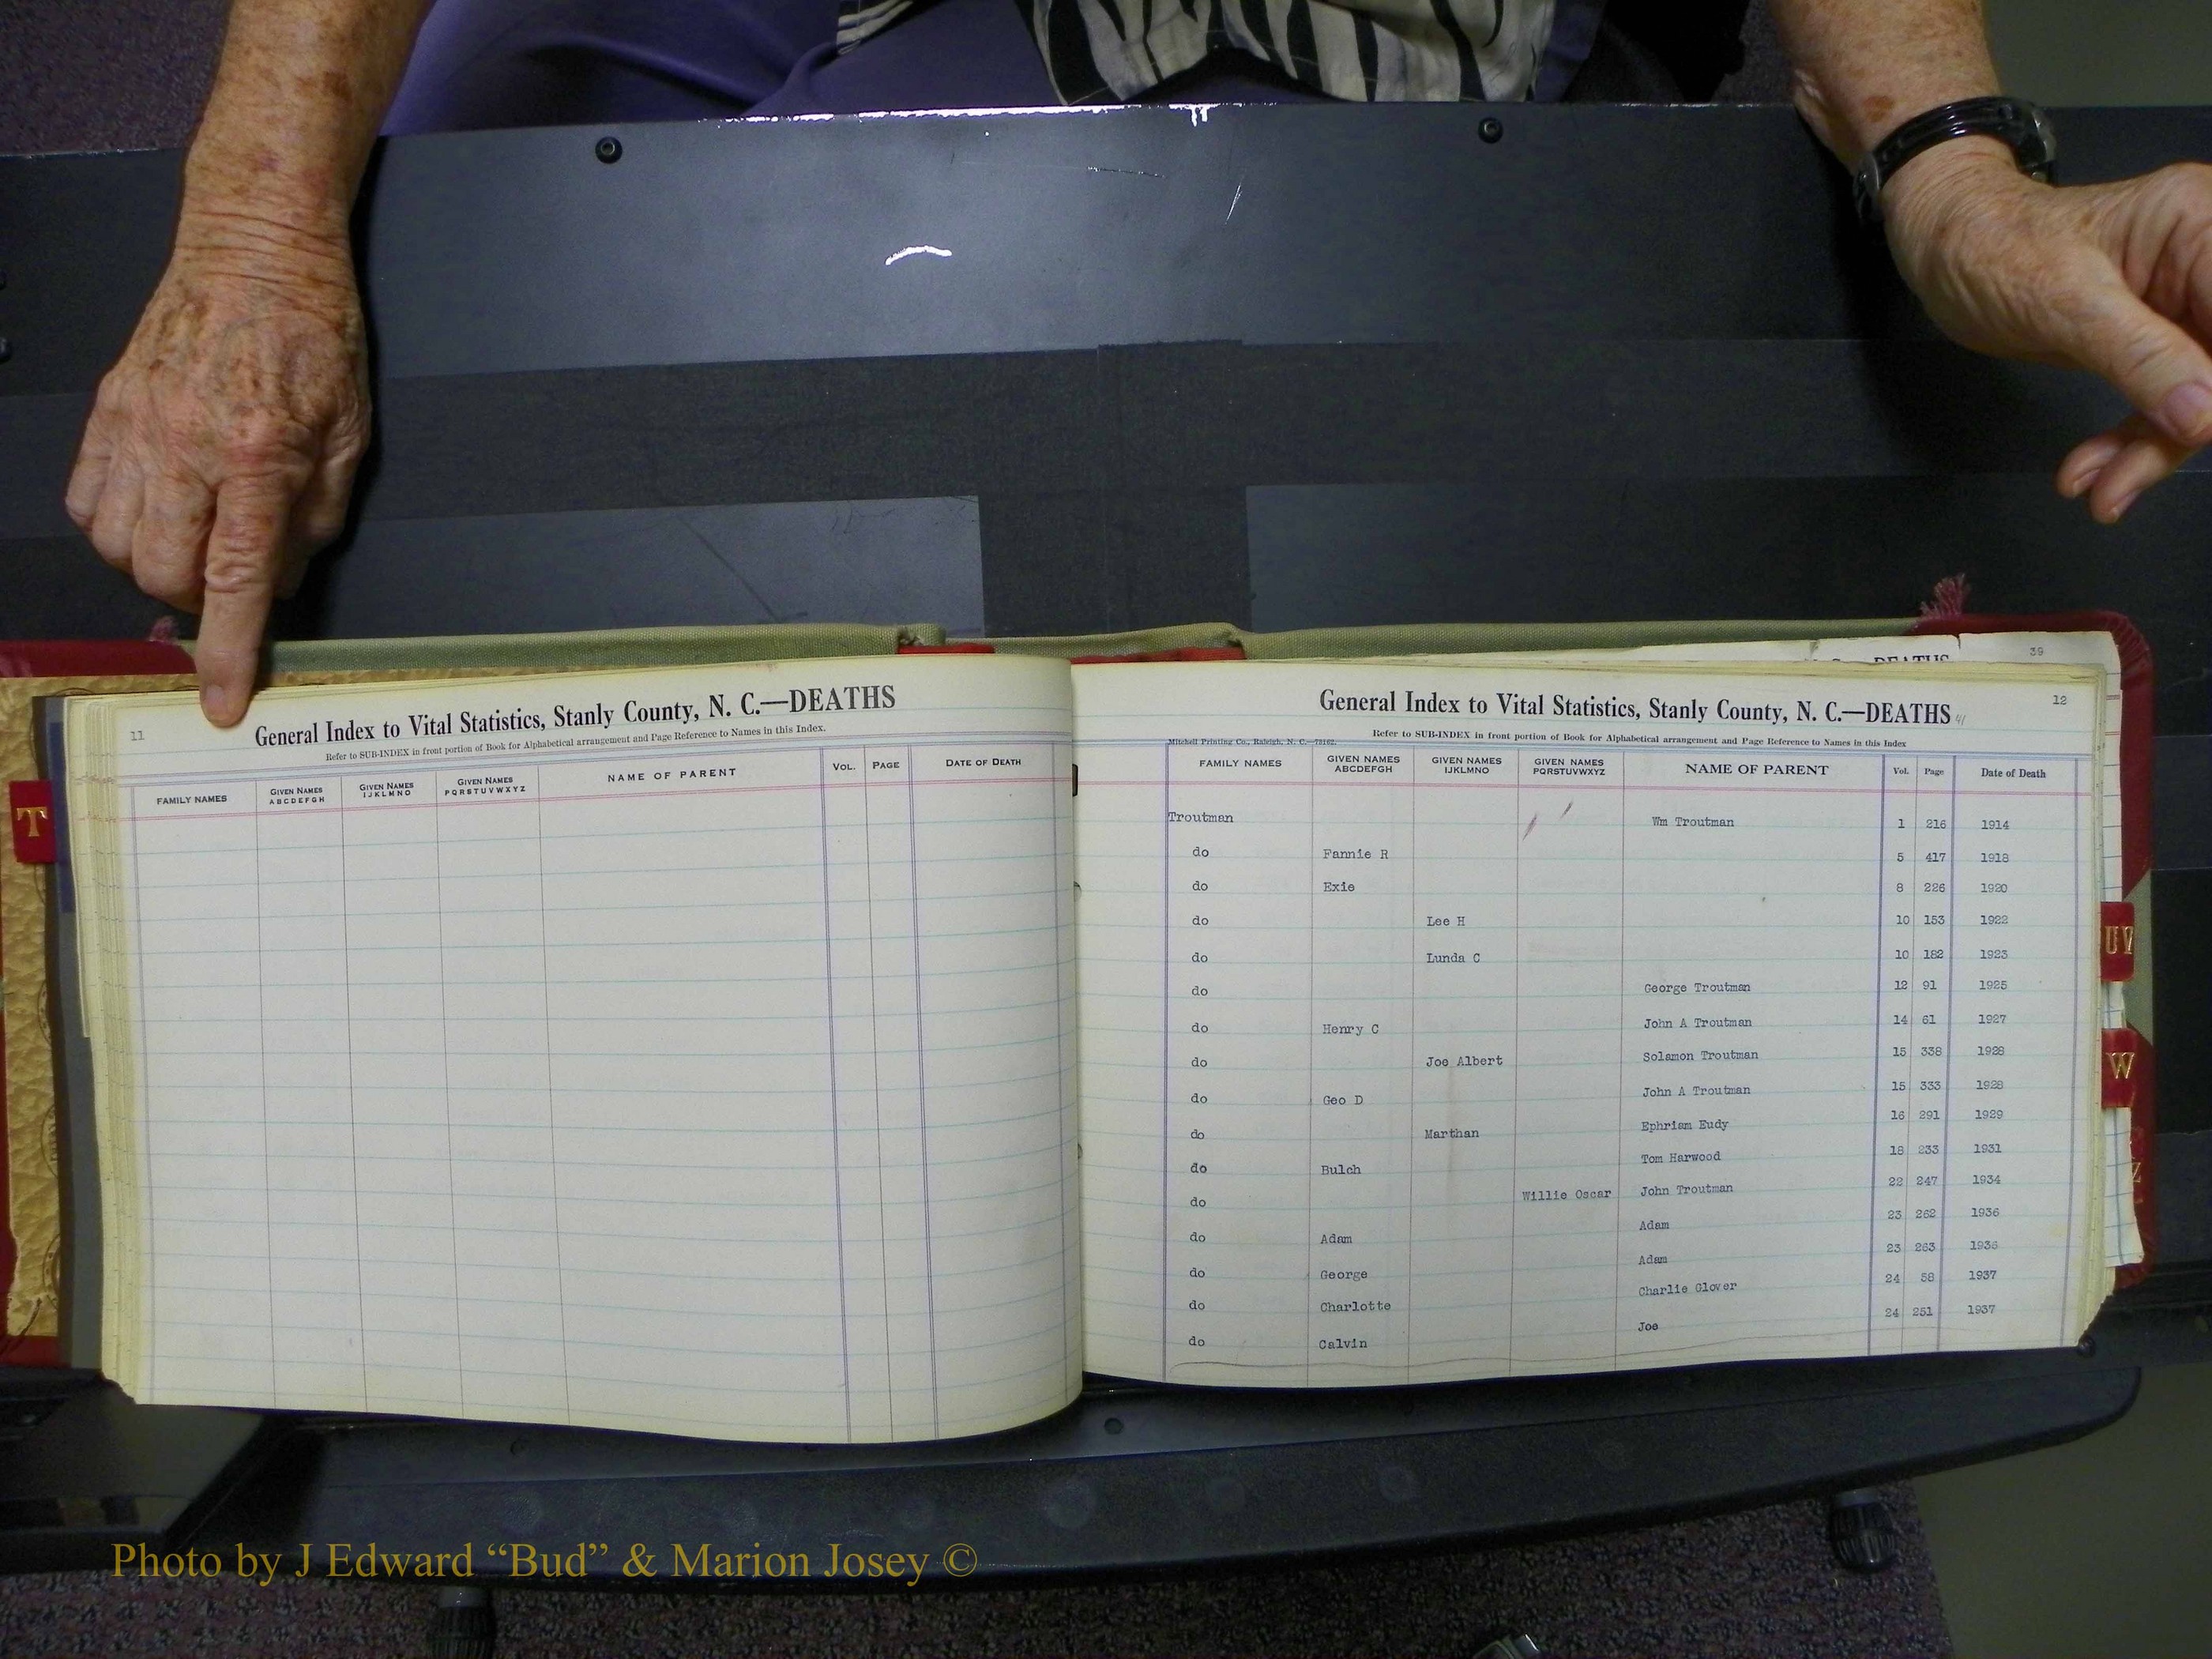 T
11
General Index to Vital Statistics, Stanly County, N. C.—DEATHS
Refer to SUB-INDEX in front portion of Book for Alphabetical arrangement and Page Reference to Names in this Index.
FAMILY NAMES GIVEN NAMES ABCDEFGH GIVEN NAMES IJKLMNO GIVEN NAMES PQRSTUVWXYZ NAME OF PARENT VOL. PAGE DATE OF DEATH
DEATHS
39
12
General Index to Vital Statistics, Stanly County, N. C.—DEATHS 41
Refer to SUB-INDEX in front portion of Book for Alphabetical arrangement and Page Reference to Names in this Index
Mitchell Printing Co., Raleigh, N. C.—
FAMILY NAMES GIVEN NAMES ABCDEFGH GIVEN NAMES IJKLMNO GIVEN NAMES PQRSTUVWXYZ NAME OF PARENT Vol. Page Date of Death
Troutman Wm Troutman 1 216 1914
do Fannie R 5 417 1918
do Exie 8 226 1920
do Lee H 10 153 1922
do Lunda C 10 182 1923
do George Troutman 12 91 1925
do Henry C John A Troutman 14 61 1927
do Joe Albert Solamon Troutman 15 338 1928
do Geo D John A Troutman 15 333 1928
do Marthan Ephriam Eudy 16 291 1929
do Bulch Tom Harwood 18 233 1931
do Willie Oscar John Troutman 22 247 1934
do Adam Adam 23 262 1936
do George Adam 23 263 1936
do Charlotte Charlie Glover 24 58 1937
do Calvin Joe 24 251 1937
UV
W
Z
Photo by J Edward “Bud” & Marion Josey ©